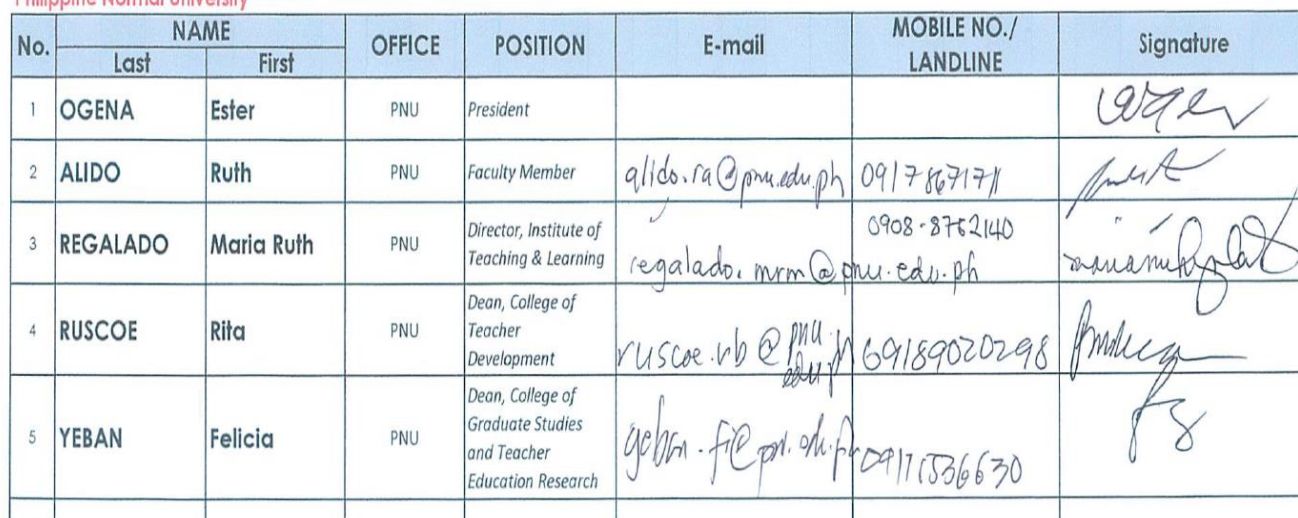 Philippine Normal University
No. NAME OFFICE POSITION E-mail MOBILE NO./ LANDLINE Signature
Last First
1 OGENA Ester PNU President
2 ALIDO Ruth PNU Faculty Member alido.ra@pnu.edu.ph 09178671711
3 REGALADO Maria Ruth PNU Director, Institute of
Teaching & Learning regalado.mrm@pnu.edu.ph 0908-8762140
4 RUSCOE Rita PNU Dean, College of
Teacher
Development ruscoe.rb@pnu.edu.ph 09189020298
5 YEBAN Felicia PNU Dean, College of
Graduate Studies
and Teacher
Education Research yeban.fi@pnu.edu.ph 0917536630